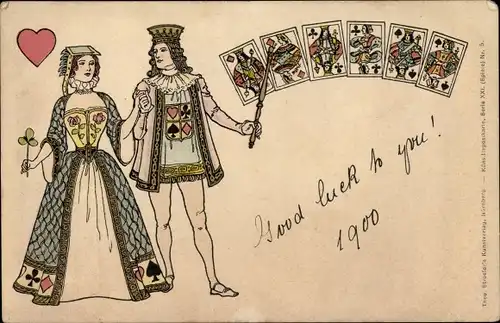 Good luck to you!
1900
Theo. Stroefer's Kunstverlag, Nürnberg. — Künstlerpostkarte, Serie XXI. (Spiele) Nr. 5.